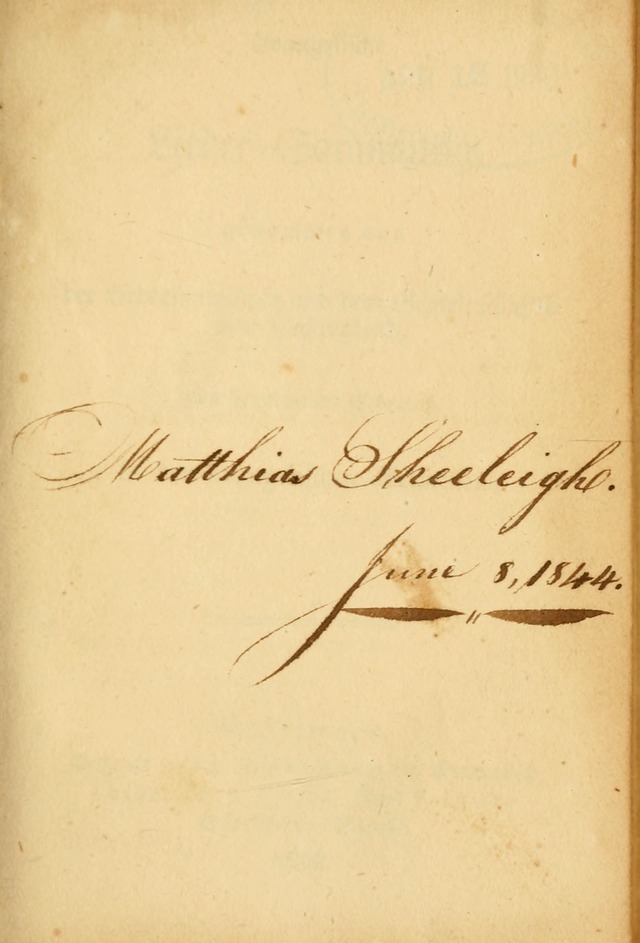 Matthias Sheeleigh.
June 8, 1844.